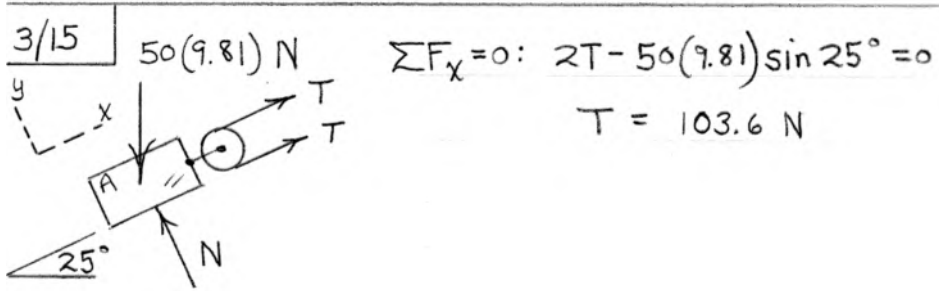 3/15
50(9.81) N
ΣFx=0: 2T-50(9.81) sin 25° =0
T = 103.6 N
y
x
T
T
A
25°
N